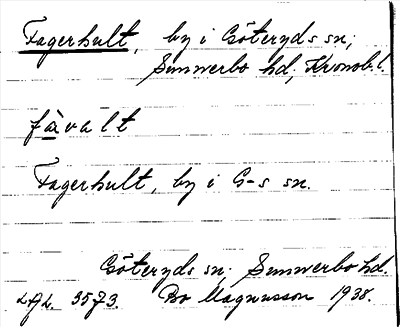 Fagerhult, by i Göteryds sn;
Sunnerbo hd; Kronob. l.
fàvalt
Fagerhult, by i G-s sn.
Göteryds sn; Sunnerbo hd.
3573. Bo Magnusson 1938.